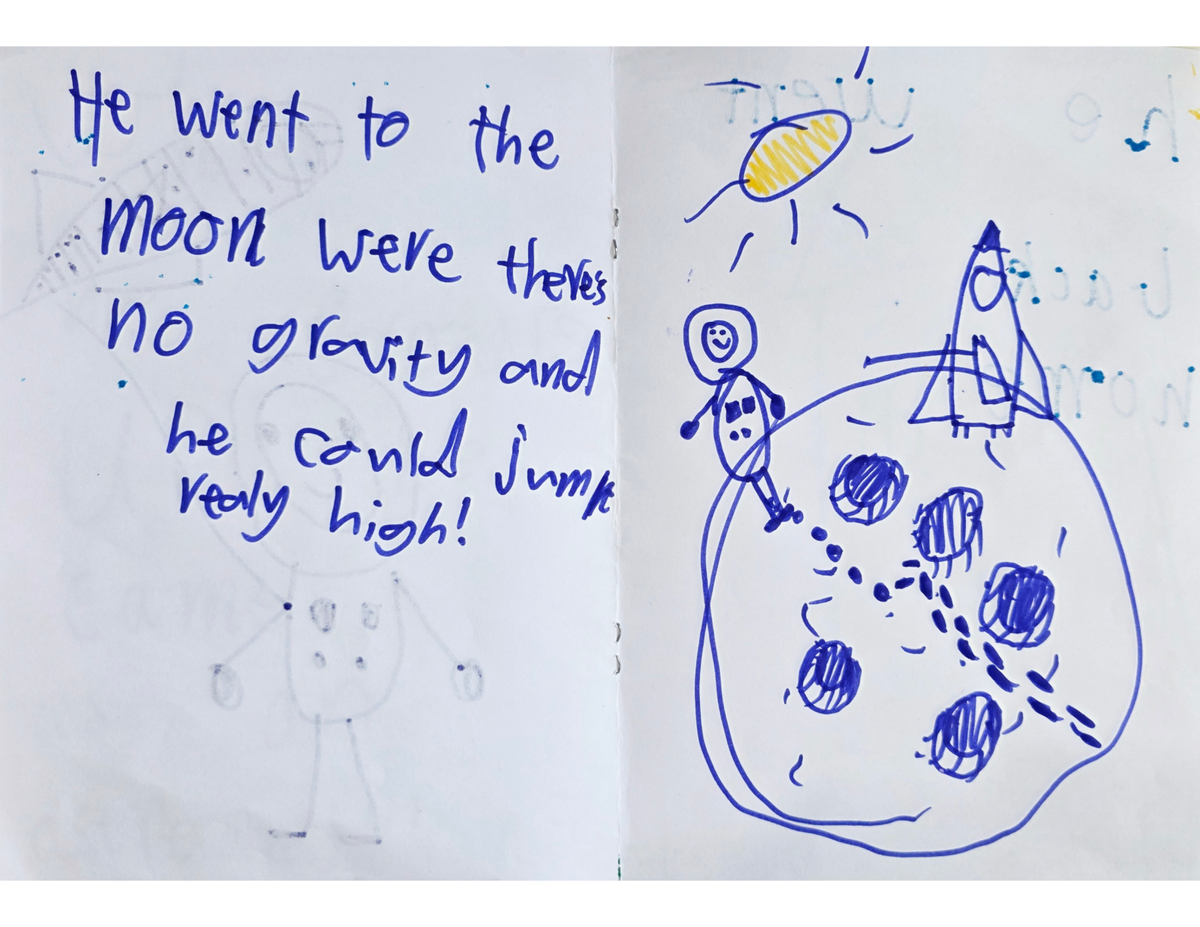 He went to the
moon were there's
no gravity and
he could jump
realy high!
he went
back
home